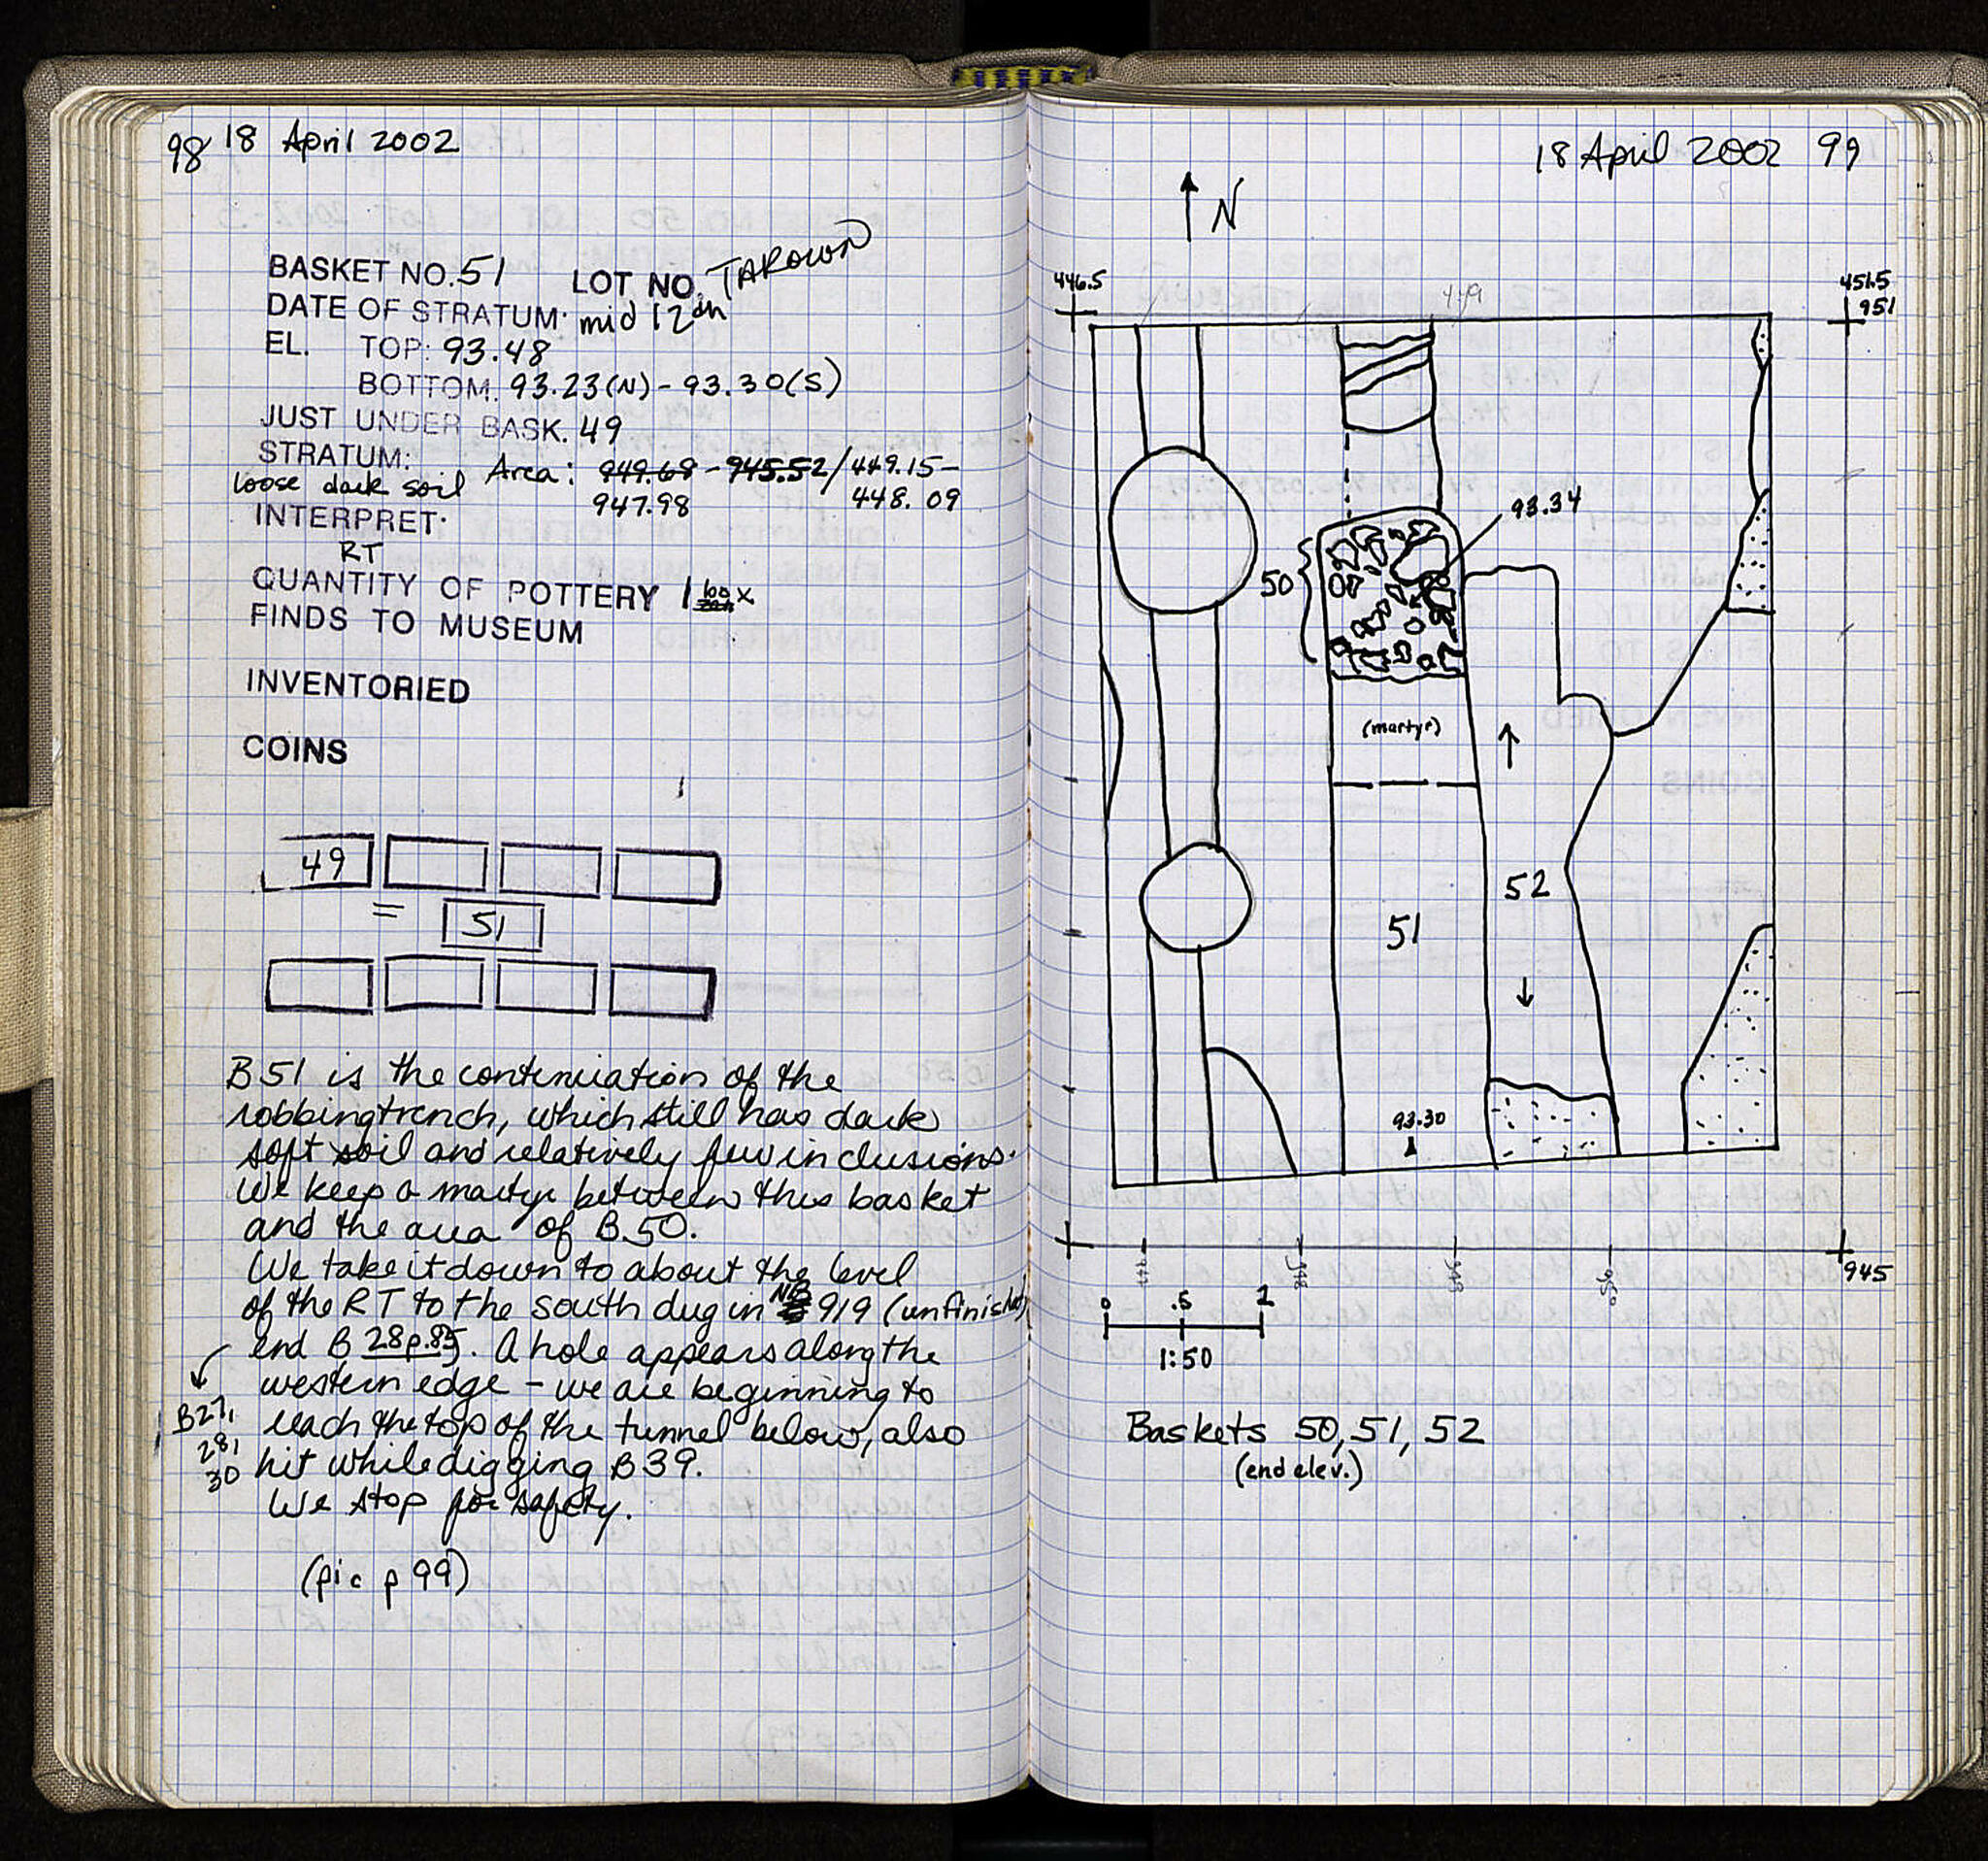 98 18 April 2002
BASKET NO. 51 LOT NO. THROWN
DATE OF STRATUM: mid 12th
EL. TOP: 93.48
BOTTOM. 93.23(N) - 93.30(S)
JUST UNDER BASK. 49
STRATUM: Area: 949.68 - 945.52 / 449.15 -
loose dark soil 947.98 448.09
INTERPRET:
RT
QUANTITY OF POTTERY 1 box
FINDS TO MUSEUM
INVENTORIED
COINS
49
= 51
B51 is the continuation of the
robbing trench, which still has dark
soft soil and relatively few inclusions.
We keep a martyr between this basket
and the area of B.50.
We take it down to about the level
of the RT to the south dug in NB 919 (unfinished)
end B 28 p.85. A hole appears along the
western edge - we are beginning to
B27, reach the top of the tunnel below, also
28, hit while digging B39.
30
We stop for safety.
(pic p 99)
18 April 2002 99
N
446.5
451.5
951
449
93.34
50
(martyr)
52
51
93.30
945
447 448 449 950
0 .5 1
1:50
Baskets 50, 51, 52
(end elev.)